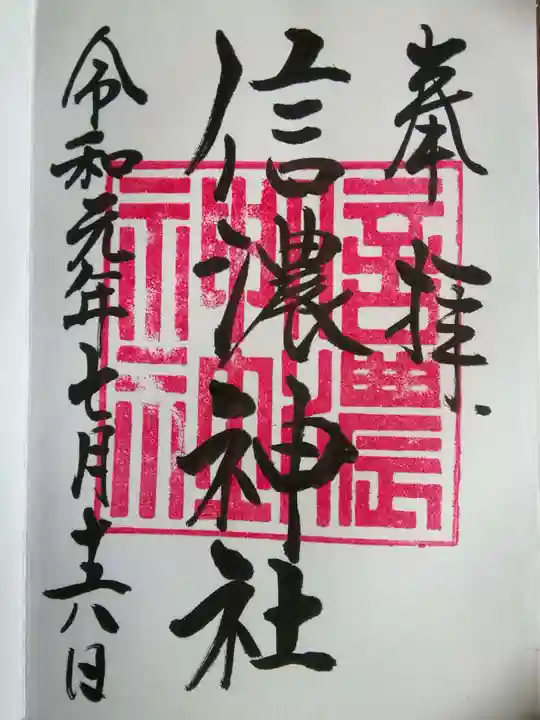 奉拝
信濃神社
令和元年七月十六日